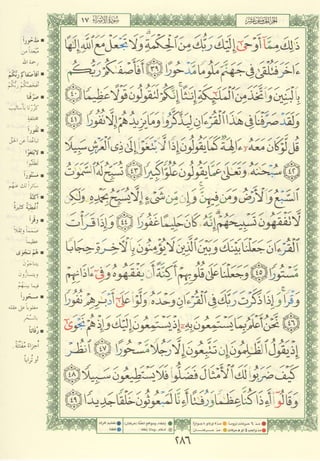 الجزء الخامس عشر
سورة الإسراء ١٧
ذَٰلِكَ مِمَّا أَوْحَىٰ إِلَيْكَ رَبُّكَ مِنَ الْحِكْمَةِ وَلَا تَجْعَلْ مَعَ اللَّهِ إِلَٰهًا
ءَاخَرَ فَتُلْقَىٰ فِي جَهَنَّمَ مَلُومًا مَدْحُورًا ٣٩ أَفَأَصْفَىٰكُمْ رَبُّكُم
بِالْبَنِينَ وَاتَّخَذَ مِنَ الْمَلَٰٓئِكَةِ إِنَٰثًا إِنَّكُمْ لَتَقُولُونَ قَوْلًا عَظِيمًا ٤٠
وَلَقَدْ صَرَّفْنَا فِي هَٰذَا الْقُرْءَانِ لِيَذَّكَّرُوا وَمَا يَزِيدُهُمْ إِلَّا نُفُورًا ٤١
قُل لَّوْ كَانَ مَعَهُ ءَالِهَةٌ كَمَا يَقُولُونَ إِذًا لَّابْتَغَوْا إِلَىٰ ذِي الْعَرْشِ سَبِيلًا
٤٢ سُبْحَٰنَهُ وَتَعَٰلَىٰ عَمَّا يَقُولُونَ عُلُوًّا كَبِيرًا ٤٣ تُسَبِّحُ لَهُ السَّمَٰوَٰتُ
السَّبْعُ وَالْأَرْضُ وَمَن فِيهِنَّ وَإِن مِّن شَيْءٍ إِلَّا يُسَبِّحُ بِحَمْدِهِ وَلَٰكِن
لَّا تَفْقَهُونَ تَسْبِيحَهُمْ إِنَّهُ كَانَ حَلِيمًا غَفُورًا ٤٤ وَإِذَا قَرَأْتَ
الْقُرْءَانَ جَعَلْنَا بَيْنَكَ وَبَيْنَ الَّذِينَ لَا يُؤْمِنُونَ بِالْآخِرَةِ حِجَابًا
مَّسْتُورًا ٤٥ وَجَعَلْنَا عَلَىٰ قُلُوبِهِمْ أَكِنَّةً أَن يَفْقَهُوهُ وَفِي ءَاذَانِهِمْ
وَقْرًا وَإِذَا ذَكَرْتَ رَبَّكَ فِي الْقُرْءَانِ وَحْدَهُ وَلَّوْا عَلَىٰ أَدْبَٰرِهِمْ نُفُورًا
٤٦ نَّحْنُ أَعْلَمُ بِمَا يَسْتَمِعُونَ بِهِ إِذْ يَسْتَمِعُونَ إِلَيْكَ وَإِذْ هُمْ نَجْوَىٰ
إِذْ يَقُولُ الظَّٰلِمُونَ إِن تَتَّبِعُونَ إِلَّا رَجُلًا مَّسْحُورًا ٤٧ انظُرْ
كَيْفَ ضَرَبُوا لَكَ الْأَمْثَالَ فَضَلُّوا فَلَا يَسْتَطِيعُونَ سَبِيلًا ٤٨
وَقَالُوا أَءِذَا كُنَّا عِظَٰمًا وَرُفَٰتًا أَءِنَّا لَمَبْعُوثُونَ خَلْقًا جَدِيدًا ٤٩
مدحورا
رحمة الله
أفأصفاكم ربكم
صرفنا
نفورا
لابتغوا
مستورا
أكنة
وقرا
هم نجوى
مسحورا
رفاتا
٢٨٦